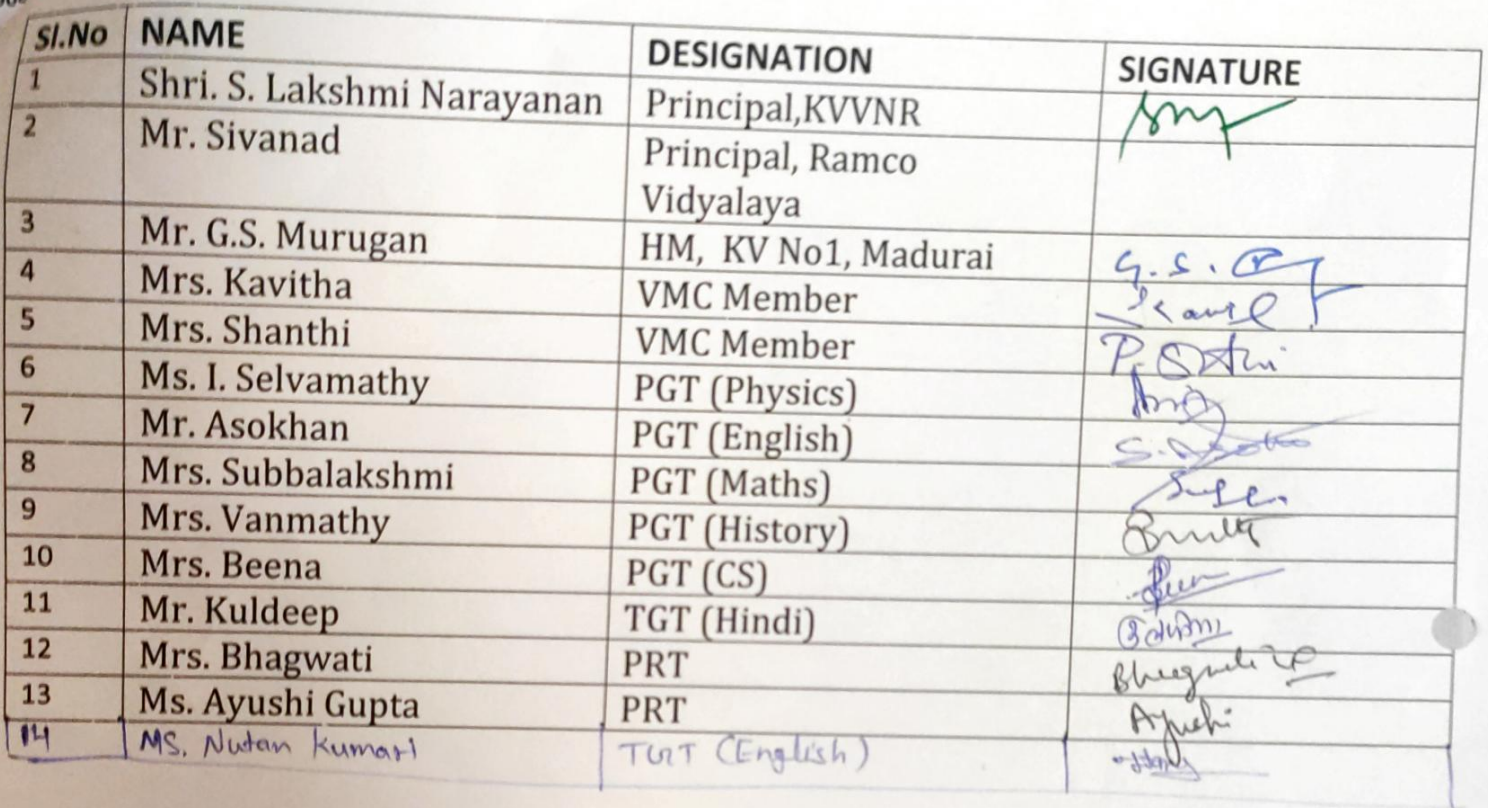 Sl.No NAME DESIGNATION SIGNATURE
1 Shri. S. Lakshmi Narayanan Principal,KVVNR
2 Mr. Sivanad Principal, Ramco
Vidyalaya
3 Mr. G.S. Murugan HM, KV No1, Madurai G.S.
4 Mrs. Kavitha VMC Member
5 Mrs. Shanthi VMC Member
6 Ms. I. Selvamathy PGT (Physics)
7 Mr. Asokhan PGT (English)
8 Mrs. Subbalakshmi PGT (Maths)
9 Mrs. Vanmathy PGT (History)
10 Mrs. Beena PGT (CS)
11 Mr. Kuldeep TGT (Hindi)
12 Mrs. Bhagwati PRT
13 Ms. Ayushi Gupta PRT Ayushi
14 MS. Nutan Kumari TGT (English)